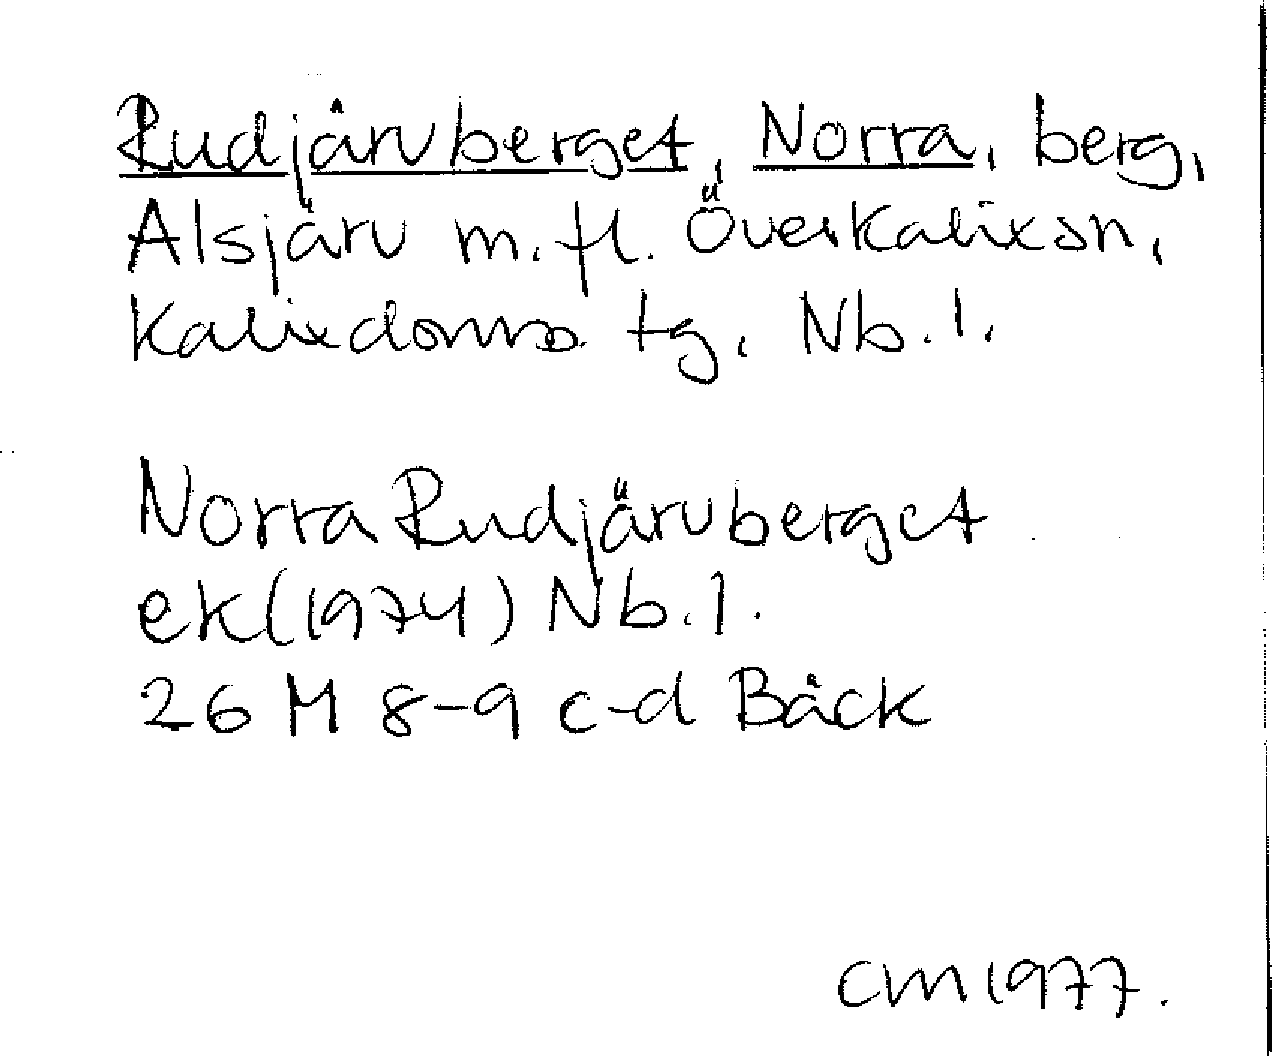 Rudjärvberget, Norra, berg,
Alsjärv m.fl. Överkalix sn,
Kalix domns tg, Nb. l.
Norra Rudjärvberget
ek (1974) Nb. l.
26 M 8-9 c-d Bäck
CM 1977.